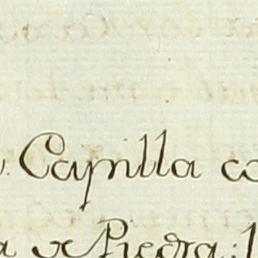 Capilla co
Piedra: